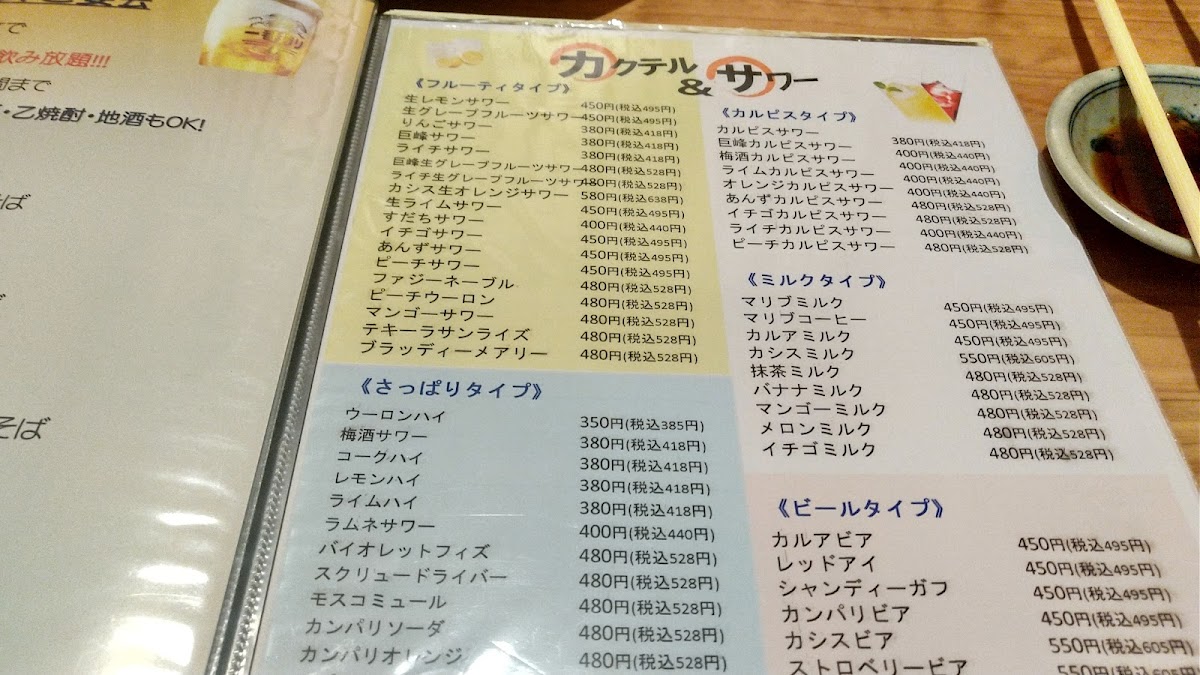 で
飲み放題!!!
間まで
・乙焼酎・地酒もOK!
そば
カクテル
&サワー
《フルーティタイプ》
生レモンサワー 450円(税込495円)
生グレープフルーツサワー 450円(税込495円)
りんごサワー 380円(税込418円)
巨峰サワー 380円(税込418円)
ライチサワー 380円(税込418円)
巨峰生グレープフルーツサワー 480円(税込528円)
ライチ生グレープフルーツサワー 480円(税込528円)
カシス生オレンジサワー 580円(税込638円)
生ライムサワー 450円(税込495円)
すだちサワー 400円(税込440円)
イチゴサワー 450円(税込495円)
あんずサワー 450円(税込495円)
ピーチサワー 450円(税込495円)
ファジーネーブル 480円(税込528円)
ピーチウーロン 480円(税込528円)
マンゴーサワー 480円(税込528円)
テキーラサンライズ 480円(税込528円)
ブラッディーメアリー 480円(税込528円)
《さっぱりタイプ》
ウーロンハイ 350円(税込385円)
梅酒サワー 380円(税込418円)
コークハイ 380円(税込418円)
レモンハイ 380円(税込418円)
ライムハイ 380円(税込418円)
ラムネサワー 400円(税込440円)
バイオレットフィズ 480円(税込528円)
スクリュードライバー 480円(税込528円)
モスコミュール 480円(税込528円)
カンパリソーダ 480円(税込528円)
カンパリオレンジ 480円(税込528円)
《カルピスタイプ》
カルピスサワー 380円(税込418円)
巨峰カルピスサワー 400円(税込440円)
梅酒カルピスサワー 400円(税込440円)
ライムカルピスサワー 400円(税込440円)
オレンジカルピスサワー 400円(税込440円)
あんずカルピスサワー 480円(税込528円)
イチゴカルピスサワー 480円(税込528円)
ライチカルピスサワー 400円(税込440円)
ピーチカルピスサワー 480円(税込528円)
《ミルクタイプ》
マリブミルク 450円(税込495円)
マリブコーヒー 450円(税込495円)
カルアミルク 450円(税込495円)
カシスミルク 550円(税込605円)
抹茶ミルク 480円(税込528円)
バナナミルク 480円(税込528円)
マンゴーミルク 480円(税込528円)
メロンミルク 480円(税込528円)
イチゴミルク 480円(税込528円)
《ビールタイプ》
カルアビア 450円(税込495円)
レッドアイ 450円(税込495円)
シャンディーガフ 450円(税込495円)
カンパリビア 450円(税込495円)
カシスビア 550円(税込605円)
ストロベリービア 550円(税込605円)